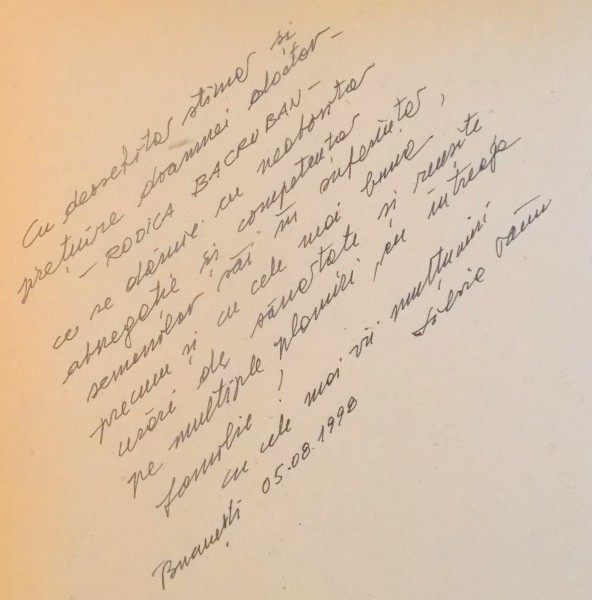 Cu deosebita stima si
prețuire doamnei doctor -
- RODICA BACRUBAN -
ce se dăruie cu neobosita
abnegație și competența
semenilor săi în suferința,
precum și cu cele mai bune
urări de sănatate si reusite
pe multiple planuri, cu întreaga
familie!
cu cele mai vii mulțumiri
Silvia
București 05.08.1998